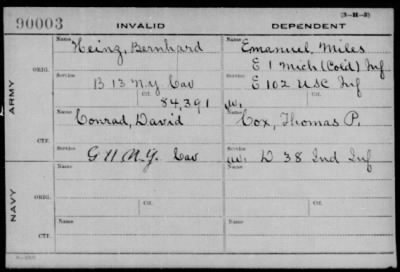 90003 INVALID DEPENDENT (3-H-3)
ARMY
ORIG.
Name Heinz, Bernhard
Name Emanuel, Miles
E 1 Mich (Cold) Inf
Service B 13 N.Y Cav
Service E 102 USC Inf
Ctf. 84,391
Ctf.
CTF.
Name Conrad, David
Name W. Cox, Thomas P.
Service G 11 N.Y. Cav
Service W. D 38 Ind Inf
NAVY
ORIG.
Name
Name
Ctf.
Ctf.
CTF.
Name
Name